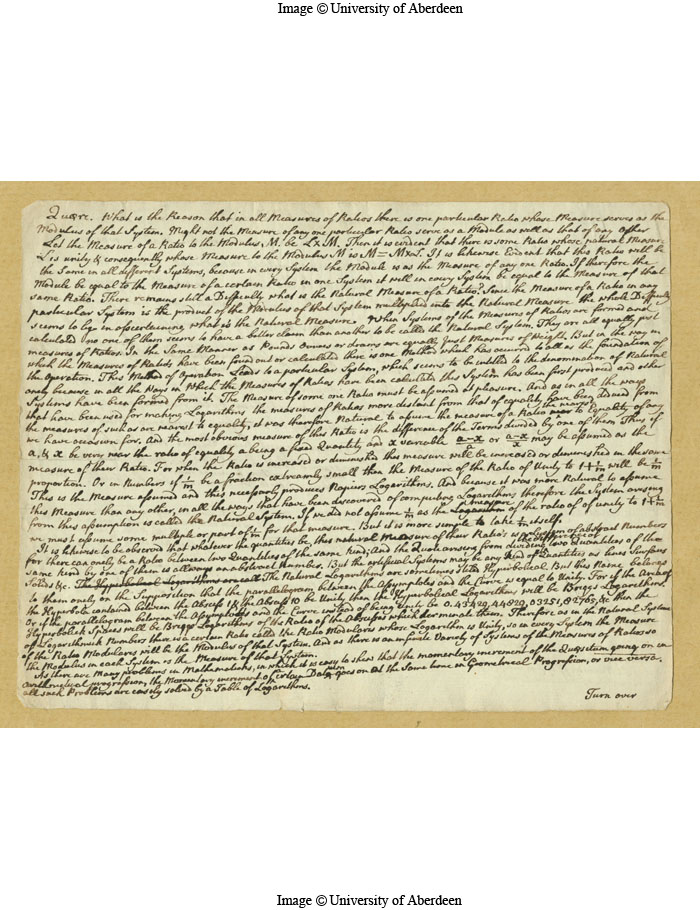 Image © University of Aberdeen
Quære. What is the Reason that in all Measures of Ratios there is one particular Ratio whose Measure serves as the
Modulus of that System. Might not the Measure of any one particular Ratio serve as a Module as well as that of any other
Let the Measure of a Ratio to the Modulus M. be L x M. Then it is evident that there is some Ratio whose natural Measure
L is unity & consequently whose Measure to the Modulus M is 1M = M x 1. It is likewise Evident that this Ratio will be
the Same in all different Systems, because in every System the Module is as the Measure of any one Ratio. If therefore the
Module be equal to the Measure of a certain Ratio in one System it will in every System be equal to the Measure of that
same Ratio. There remains still a Difficulty what is the Natural Measure of a Ratio? Since the Measure of a Ratio in any
particular System is the product of the Modulus of that System multiplied into the Natural Measure the whole Difficulty
seems to lye in ascertaining what is the Natural Measure. When Systems of the Measures of Ratios are formed and
calculated no one of them seems to have a better claim than another to be called the Natural System. They are all equally just
measures of Ratios. In the Same Manner as Pounds Ounces or drams are equally Just Measures of Weight. But in the way in
which the Measures of Ratios have been found out or calculated there is one Method which has occurred to all as the foundation of
the Operation. This Method of Operation Leads to a particular System, which seems to be intitled to the denomination of Natural
only because in all the ways in Which the Measures of Ratios have been calculate this System has been first produced and other
Systems have been formed from it. The Measure of some one Ratio must be assumed at pleasure. And as in all the ways
that have been used for making Logarithms the measures of Ratios more distant from that of equality have been derived from
the measures of such as are nearest to equality; it was therefore Natural to assume the measure of a Ratio near to Equality of any
we have occasion for. And the most obvious measure of this Ratio is the difference of the Terms divided by one of them Thus if
a, & x be very near the ratio of equality a being a fixed Quantity and x variable a-x/a or a-x/x may be assumed as the
measure of their Ratio. For when the Ratio is increased or diminished this measure will be increased or diminished in the same
proportion. Or in Numbers if 1/m be a fraction extreamly small then the Measure of the Ratio of Unity to 1+1/m will be 1/m
This is the Measure assumed and this necessarly produces Napiers Logarithms. And because it was more Natural to assume
this Measure than any other, in all the ways that have been discovered of computing Logarithms therefore the System arising
from this assumption is called the Natural System. If we did not assume 1/m as the measure of the ratio of unity to 1+1/m
we must assume some multiple or part of 1/m for that measure. But it is more simple to take 1/m itself.
It is likewise to be observed that whatever the quantities be, this natural measure of their Ratio is a System of abstract Numbers
for there can onely be a Ratio between two Quantities of the same kind; And the Quote arising from dividing two Quantities of the
same kind by one of them is allways an abstract number. But the artificial Systems may be any Kind of Quantities as lines Surfaces
Solids &c. The Natural Logarithms are sometimes stiled Hyperbolical. But this Name belongs
to them onely on the Supposition that the parallelogram between the Assymptotes and the Curve is equal to Unity. For if the Area of
the Hyperbola contained between the Absciss 1 & the Absciss 10 be Unity then the Hyperbolical Logarithms will be Briggs Logarithms.
Or if the parallelogram between the Assymptotes and the Curve instead of being Unity be 0.43429,44819,03251,82765,&c then the
Hyperbolick Spaces will be Briggs Logarithms of the Ratio of the Abscisses which determinate them. Therefore as in the Natural System
of Logarithmick Numbers there is a certain Ratio called the Ratio Modularis whose Logarithm is Unity, so in every System the Measure
of the Ratio Modularis will be the Modulus of that System. And as there is an infinite Variety of Systems of the Measures of Ratios so
the Modulus in each System is the Measure of that System.
As there are Many problems in Mathematicks, in which it is easy to shew that the momentary increment of the Quæsitum going on in
arithmetical progression, the Momentary increment of certain Data goes on at the Same time in Geometrical Progression, or vice versa.
all such Problems are easily solved by a Table of Logarithms.
Turn over
Image © University of Aberdeen